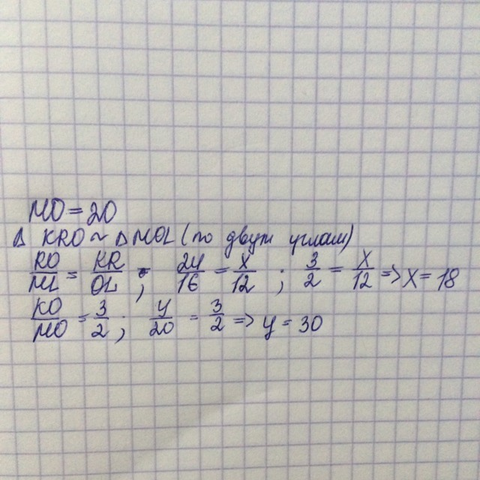 MO = 20
Δ KRO ~ Δ MOL (по двум углам)
RO/ML = KR/OL ; 24/16 = x/12 ; 3/2 = x/12 => x = 18
KO/MO = 3/2 ; y/20 = 3/2 => y = 30